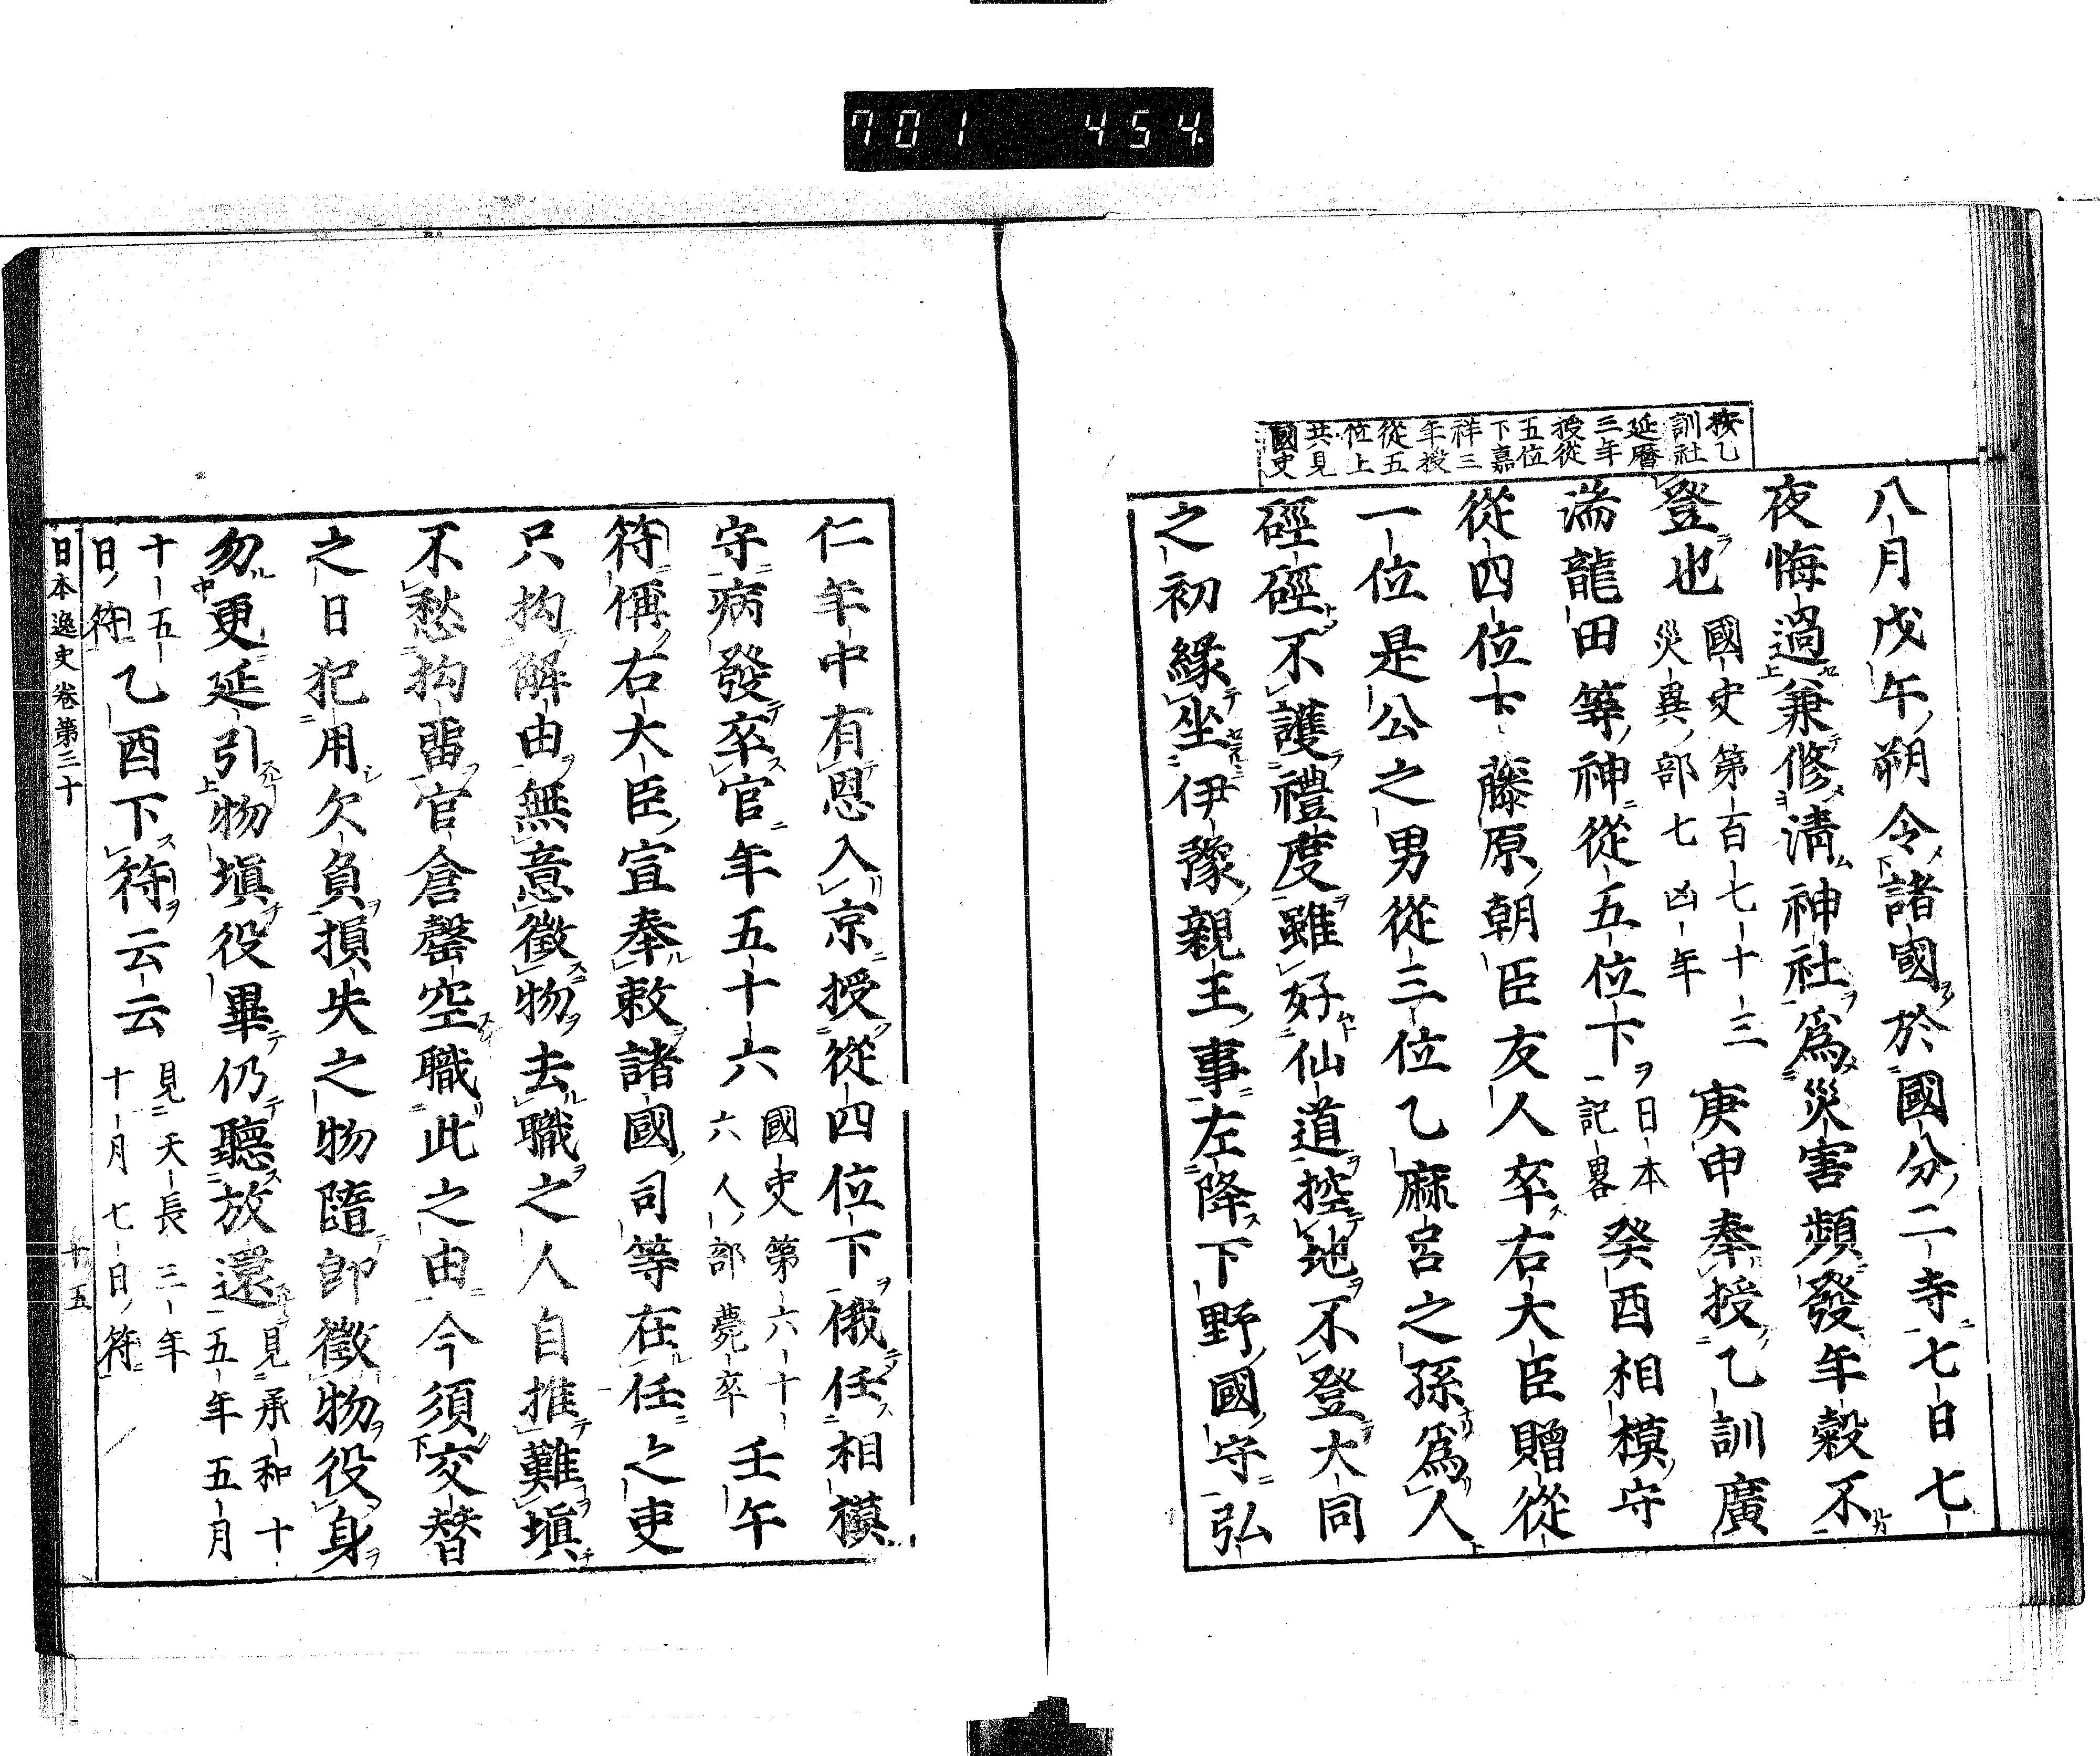 701 454
按乙
訓社
延暦
三年
授從
五位
下嘉
祥三
年授
從五
位上
共見
國史
八月戊午朔令諸國於國分二寺七日七
夜悔過兼修淸神社爲災害頻發年穀不
登也國史第百七十三災異部七凶年 庚申奉授乙訓廣
湍龍田等神從五位下日本記畧癸酉相模守
從四位下藤原朝臣友人卒右大臣贈從
一位是公之男從三位乙麻呂之孫爲人
硜硜不護禮度雖好仙道控地不登大同
之初緣坐伊豫親王事左降下野國守弘
仁年中有恩入京授從四位下俄任相模
守病發卒官年五十六國史第六十六人部薨卒 壬午
符偁右大臣宣奉敕諸國司等在任之吏
只拘解由無意徵物去職之人自推難塡
不愁拘畱官倉罄空職此之由今須交替
之日犯用欠負損失之物隨卽徵物役身
勿更延引物塡役畢仍聽放還見承和十五年五月
十五日符乙酉下符云云見天長三年十月七日符
日本逸史卷第三十 十五